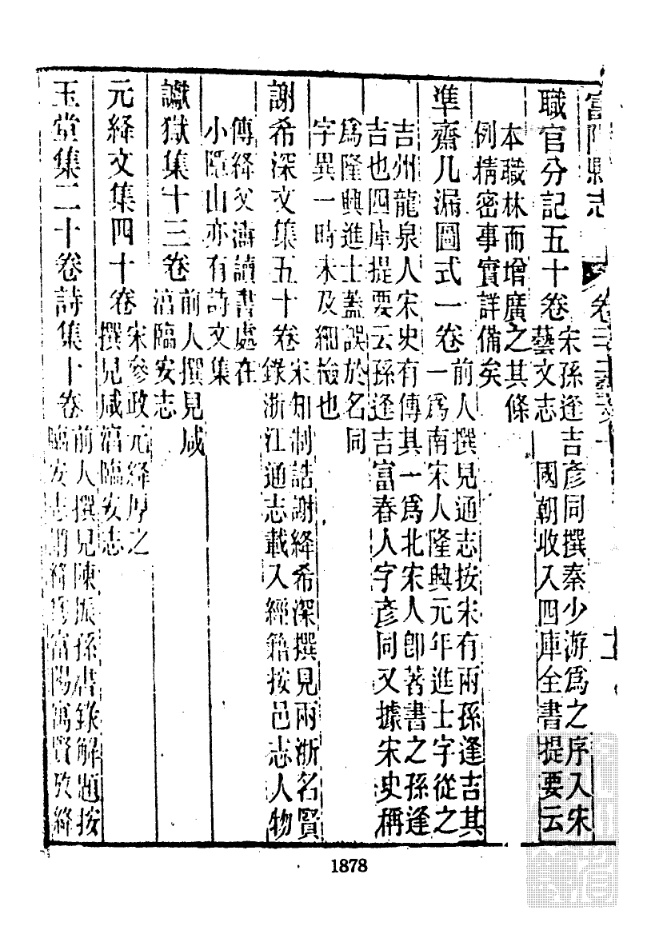 富陽縣志
職官分記五十卷
宋孫逢吉彥同撰秦少游爲之序入宋
藝文志 國朝收入四庫全書提要云
本職林而增廣之其條
例精密事實詳備矣
準齋几漏圖式一卷
前人撰見通志按宋有兩孫逢吉其
一爲南宋人隆興元年進士字從之
吉州龍泉人宋史有傳其一爲北宋人卽著書之孫逢
吉也四庫提要云孫逢吉富春人字彥同又據宋史稱
爲隆興進士蓋誤於名同
字異一時未及細檢也
謝希深文集五十卷
宋知制誥謝絳希深撰見兩浙名賢
錄浙江通志載入經籍按邑志人物
傳絳父濤讀書處在
小隱山亦有詩文集
讞獄集十三卷
前人撰見咸
湻臨安志
元絳文集四十卷
宋參政元絳厚之
撰見咸湻臨安志
玉堂集二十卷詩集十卷
前人撰見陳振孫書錄解題按
臨安志謂絳爲富陽寓賢攷絳
1878